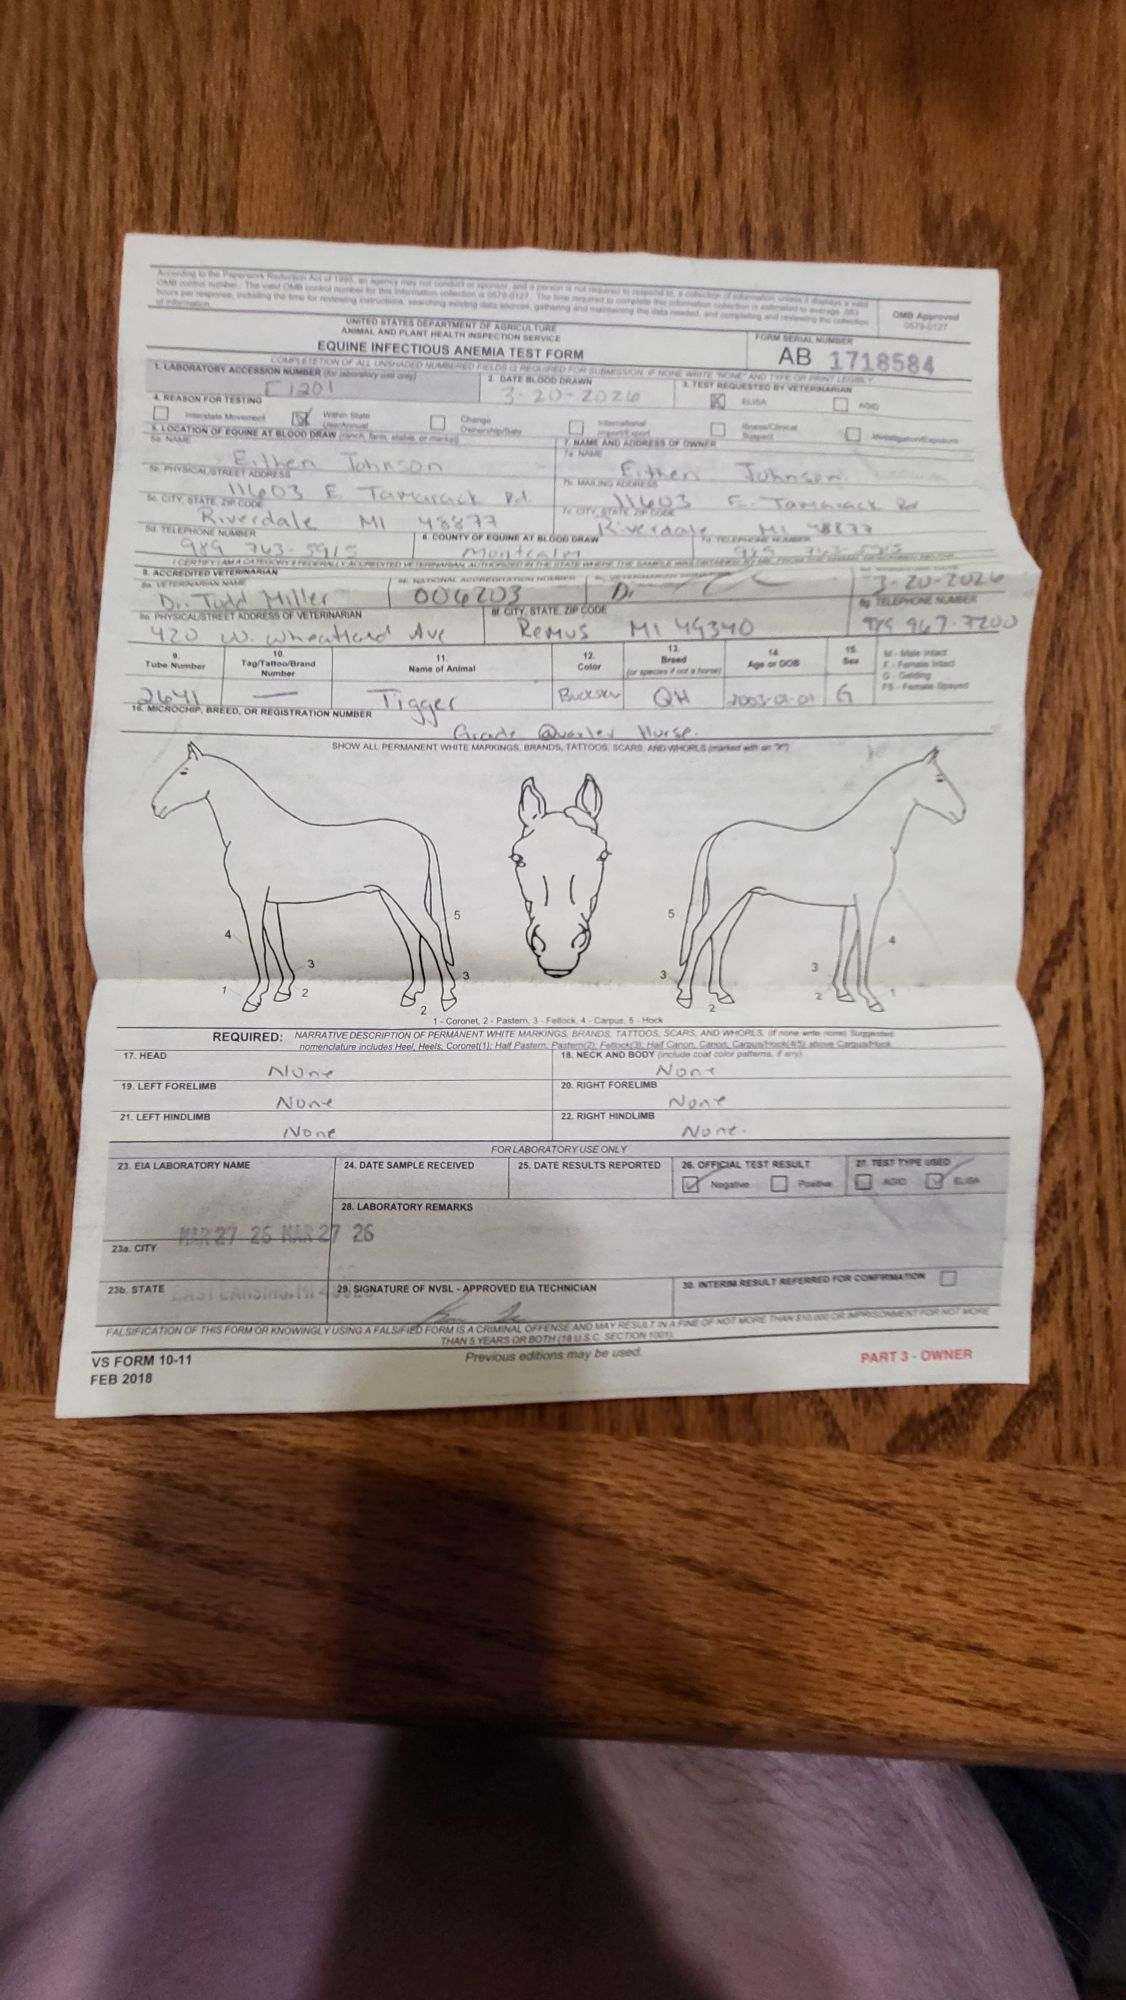 According to the Paperwork Reduction Act of 1995, an agency may not conduct or sponsor, and a person is not required to respond to, a collection of information unless it displays a valid
OMB control number. The valid OMB control number for this information collection is 0579-0127. The time required to complete this information collection is estimated to average .083
hours per response, including the time for reviewing instructions, searching existing data sources, gathering and maintaining the data needed, and completing and reviewing the collection
of information.
OMB Approved
0579-0127
UNITED STATES DEPARTMENT OF AGRICULTURE
ANIMAL AND PLANT HEALTH INSPECTION SERVICE
EQUINE INFECTIOUS ANEMIA TEST FORM
FORM SERIAL NUMBER
AB 1718584
COMPLETION OF ALL UNSHADED NUMBERED FIELDS IS REQUIRED FOR SUBMISSION. IF NONE WRITE 'NONE' AND TYPE OR PRINT LEGIBLY
1. LABORATORY ACCESSION NUMBER (for laboratory use only)
E1201
2. DATE BLOOD DRAWN
3-20-2026
3. TEST REQUESTED BY VETERINARIAN
ELISA AGID
4. REASON FOR TESTING
Interstate Movement
Within State Use/Annual
Change Ownership/Sale
International Import/Export
Illness/Clinical Suspect
Investigation/Exposure
5. LOCATION OF EQUINE AT BLOOD DRAW (ranch, farm, stable, or market)
7. NAME AND ADDRESS OF OWNER
5a. NAME
Eithen Johnson
7a. NAME
Eithen Johnson
5b. PHYSICAL/STREET ADDRESS
11603 E Tamarack Rd.
7b. MAILING ADDRESS
11603 E. Tamarack Rd
5c. CITY, STATE, ZIP CODE
Riverdale MI 48877
7c. CITY, STATE, ZIP CODE
Riverdale MI 48877
5d. TELEPHONE NUMBER
989 763-5915
6. COUNTY OF EQUINE AT BLOOD DRAW
Montcalm
7d. TELEPHONE NUMBER
8. ACCREDITED VETERINARIAN
8a. VETERINARIAN NAME
Dr. Todd Miller
8b. NATIONAL ACCREDITATION NUMBER
006203
Dr.
3-20-2026
8e. PHYSICAL/STREET ADDRESS OF VETERINARIAN
420 W. Wheatland Ave
8f. CITY, STATE, ZIP CODE
Remus MI 49340
8g. TELEPHONE NUMBER
989 967-7200
9. Tube Number
10. Tag/Tattoo/Brand Number
11. Name of Animal
12. Color
13. Breed (or species if not a horse)
14. Age or DOB
15. Sex
M - Male Intact
F - Female Intact
G - Gelding
FS - Female Spayed
2641 — Tigger Buckskin QH 2003-01-01 G
16. MICROCHIP, BREED, OR REGISTRATION NUMBER
Grade Quarter Horse.
SHOW ALL PERMANENT WHITE MARKINGS, BRANDS, TATTOOS, SCARS, AND WHORLS (marked with an "X")
4 1 3 2 5 3 2
5 3 2 3 2 4 1
1 - Coronet, 2 - Pastern, 3 - Fetlock, 4 - Carpus, 5 - Hock
REQUIRED: NARRATIVE DESCRIPTION OF PERMANENT WHITE MARKINGS, BRANDS, TATTOOS, SCARS, AND WHORLS. (If none write none) Suggested
nomenclature includes Heel, Heels, Coronet(1); Half Pastern, Pastern(2); Fetlock(3); Half Canon, Canon, Carpus/Hock(4/5); above Carpus/Hock
17. HEAD
None
18. NECK AND BODY (include coat color patterns, if any)
None
19. LEFT FORELIMB
None
20. RIGHT FORELIMB
None
21. LEFT HINDLIMB
None
22. RIGHT HINDLIMB
None.
FOR LABORATORY USE ONLY
23. EIA LABORATORY NAME
24. DATE SAMPLE RECEIVED
25. DATE RESULTS REPORTED
26. OFFICIAL TEST RESULT
Negative Positive
27. TEST TYPE USED
AGID ELISA
28. LABORATORY REMARKS
MAR 27 26 MAR 27 26
23a. CITY
23b. STATE
EAST LANSING, MI
29. SIGNATURE OF NVSL - APPROVED EIA TECHNICIAN
30. INTERIM RESULT REFERRED FOR CONFIRMATION
FALSIFICATION OF THIS FORM OR KNOWINGLY USING A FALSIFIED FORM IS A CRIMINAL OFFENSE AND MAY RESULT IN A FINE OF NOT MORE THAN $10,000 OR IMPRISONMENT FOR NOT MORE
THAN 5 YEARS OR BOTH (18 U.S.C. SECTION 1001).
VS FORM 10-11
FEB 2018
Previous editions may be used.
PART 3 - OWNER